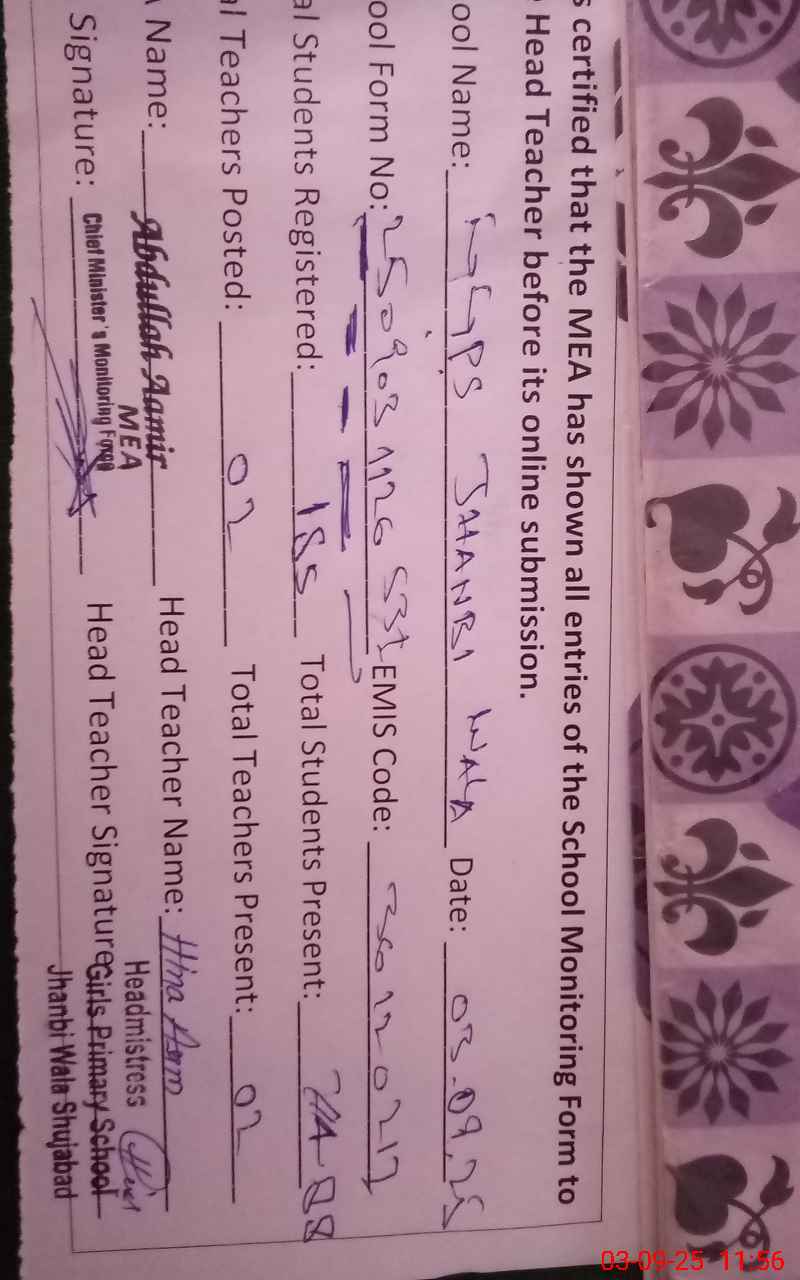 s certified that the MEA has shown all entries of the School Monitoring Form to
Head Teacher before its online submission.
ool Name: GGPS JHANBI WALA Date: 03.09.25
ool Form No: 2509031126 531 EMIS Code:
al Students Registered: 185 Total Students Present: 88
al Teachers Posted: 02 Total Teachers Present: 02
Name: Abdullah Aamir Head Teacher Name: Hina
MEA Headmistress
Signature: Chief Minister's Monitoring Force Head Teacher Signature Girls Primary School
Jhanbi Wala Shujabad
03-09-25 11:56